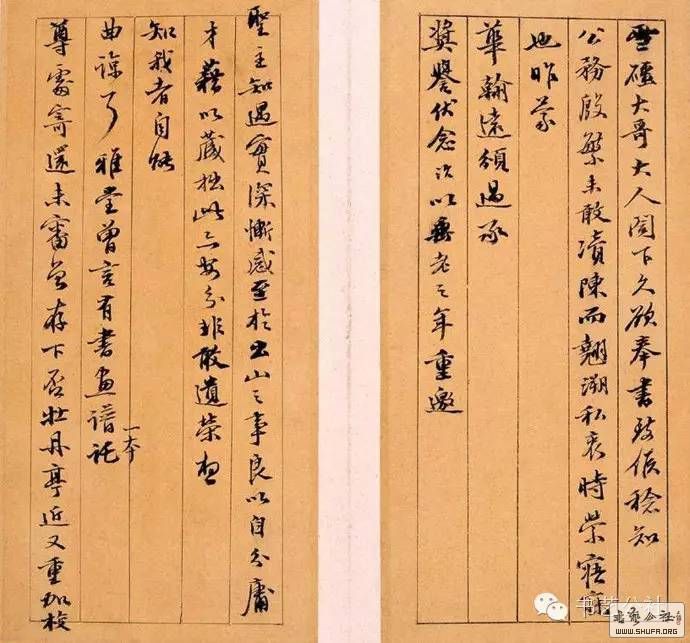 雪礓大哥大人閣下久欲奉書致候稔知
公務殷繁未敢瀆陳而翹溯私衷時縈寤寐
也昨蒙
華翰遠頒過承
獎譽伏念以垂老之年重邀
聖主知遇實深慚感至於出山之事良以自分庸
才藉以藏拙此亦安分非敢遺榮想
知我者自悟
曲諒乎雅堂曾言有書畫譜一本託
尊處寄還未審曾存下否牡丹亭近又重加校
书艺公社
WWW.SHUFA.ORG